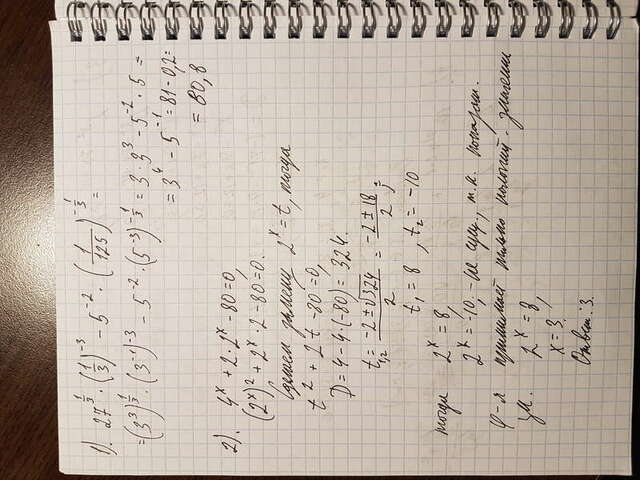 1). 27^{1/3} · (1/3)^{-3} - 5^{-2} · (1/125)^{-1/3} =
= (3^3)^{1/3} · (3^{-1})^{-3} - 5^{-2} · (5^{-3})^{-1/3} = 3 · 3^3 - 5^{-2} · 5 =
= 3^4 - 5^{-1} = 81 - 0,2 =
= 80,8
2). 4^x + 2 · 2^x - 80 = 0,
(2^x)^2 + 2^x · 2 - 80 = 0.
Сделаем замену 2^x = t, тогда
t^2 + 2t - 80 = 0,
D = 4 - 4 · (-80) = 324.
t_{1,2} = (-2 ± √324)/2 = (-2 ± 18)/2;
t_1 = 8, t_2 = -10
тогда 2^x = 8,
2^x = -10, - не сущ., т.к. показат.
ф-я принимает только положит. значения
2^x = 8,
x = 3.
Ответ: 3.